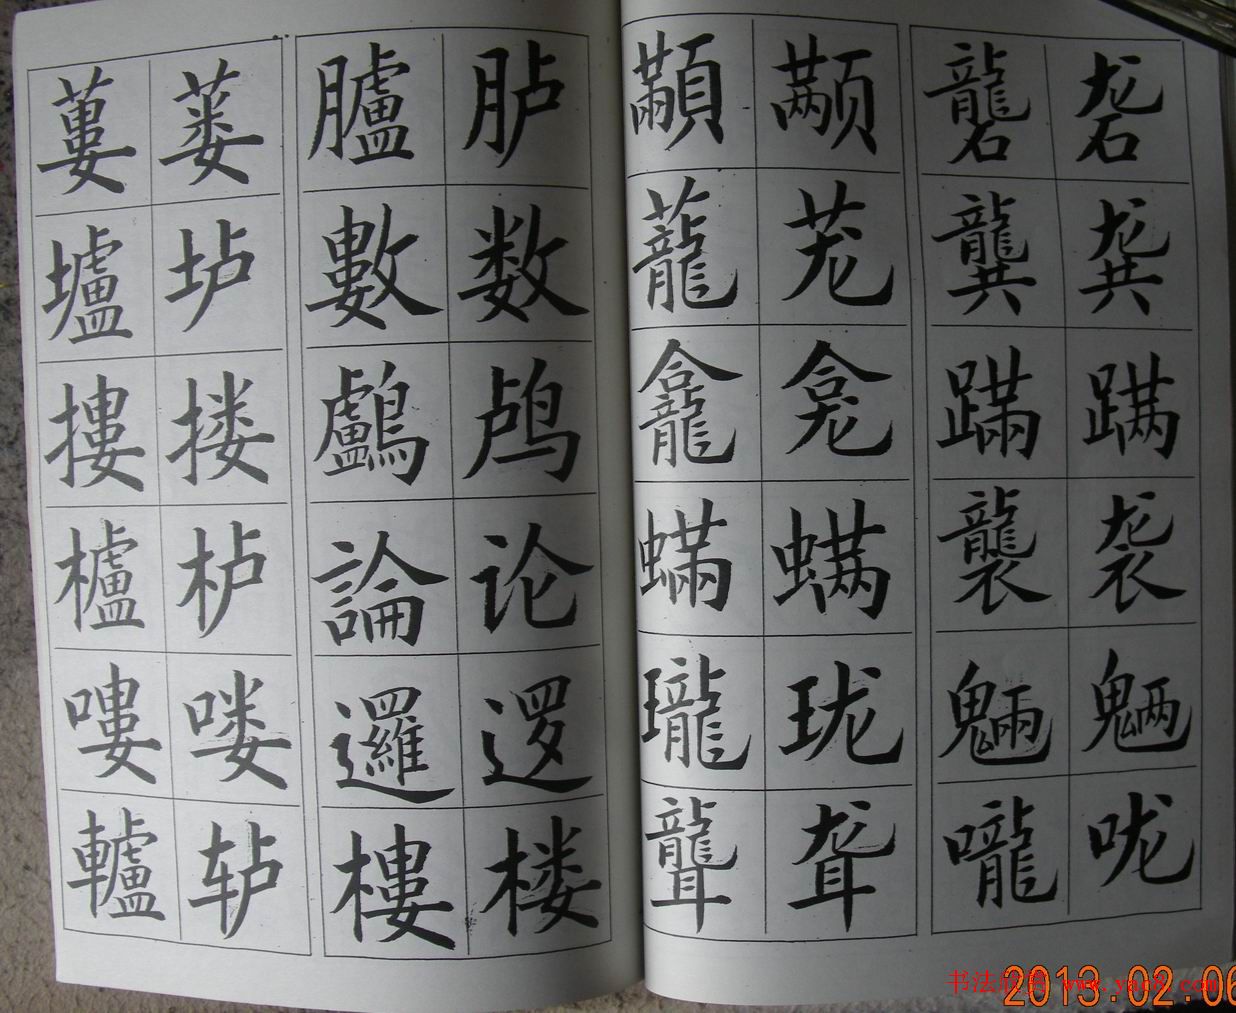 蔞 蒌 臚 胪 顢 颟 礱 砻
壚 垆 數 数 蘢 茏 龔 龚
摟 搂 鸕 鸬 龕 龛 蹣 蹒
櫨 栌 論 论 蟎 螨 襲 袭
嘍 喽 邏 逻 瓏 珑 魎 魉
轤 轳 樓 楼 聾 聋 嚨 咙
www.yac8.com
2013.02.06